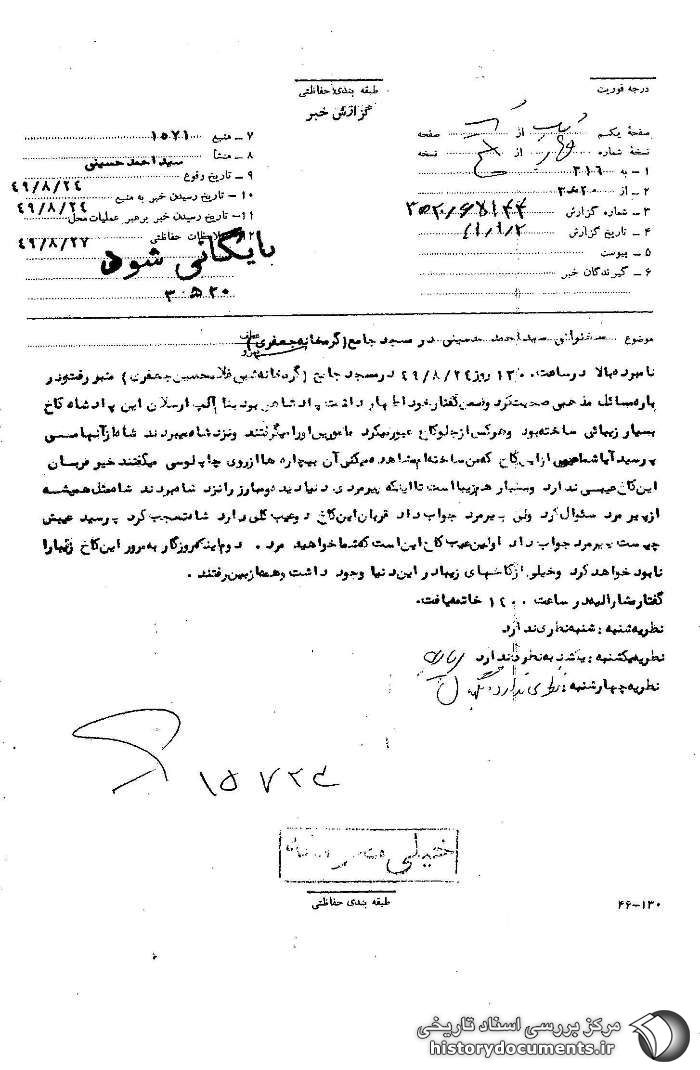 درجه فوریت
طبقه بندی حفاظتی
گزارش خبر
صفحهٔ یکم از صفحه
نسخهٔ شماره از نسخه
۱ – به ۳۱۶
۲ – از
۳ – شماره گزارش
۴ – تاریخ گزارش
۵ – پیوست
۶ – گیرندگان خبر
۷ – منبع ۱۵۷۱
۸ – منشأ سید احمد حسینی
۹ – تاریخ وقوع ۴۹/۸/۲۴
۱۰ – تاریخ رسیدن خبر به منبع ۴۹/۸/۲۴
۱۱ – تاریخ رسیدن خبر برهبر عملیات محل
ملاحظات حفاظتی ۴۹/۸/۲۷
بایگانی شود
۳۰۵۲۰
موضوع سخنرانی سید احمد حسینی در مسجد جامع (گرمخانه جعفری)
نامبرده بالا در ساعت ۱۳۰۰ روز ۴۹/۸/۲۴ در مسجد جامع (گرمخانه شیخ غلامحسین جعفری) منبر رفت و در
باره مسائل مذهبی صحبت کرد و ضمن گفتار خود اظهار داشت پادشاهی بود بنام آلب ارسلان این پادشاه کاخ
بسیار زیبائی ساخته بود و هر کس از جلو کاخ عبور میکرد مامورین او را میگرفتند و نزد شاه میبردند شاه از آنها می
پرسید آیا شما عیبی از این کاخ که من ساخته ام مشاهده میکنی آن بیچاره ها از روی چاپلوسی میگفتند خیر قربان
این کاخ عیبی ندارد و بسیار هم زیبا است تا اینکه پیر مردی دنیا دیده و مبارز را نزد شاه بردند شاه مثل همیشه
از پیر مرد سئوال کرد ولی پیر مرد جواب داد قربان این کاخ دو عیب کلی دارد شاه تعجب کرد پرسید عیبش
چیست پیر مرد جواب داد اولین عیب کاخ این است که شما خواهید مرد . دوم اینکه روزگار به مرور این کاخ زیبا را
نابود خواهد کرد و خیلی از کاخهای زیبا در این دنیا وجود داشت و همه از بین رفتند .
گفتار مشارالیه در ساعت ۱۴۰۰ خاتمه یافت .
نظریه شنبه : شنبه نظری ندارد
نظریه یکشنبه : یکشنبه نظری ندارد
نظریه چهارشنبه : نظری ندارد
۱۵۷۲۴
خیلی محرمانه
طبقه بندی حفاظتی
۴۶–۱۳۰
مرکز بررسی اسناد تاریخی
historydocuments.ir